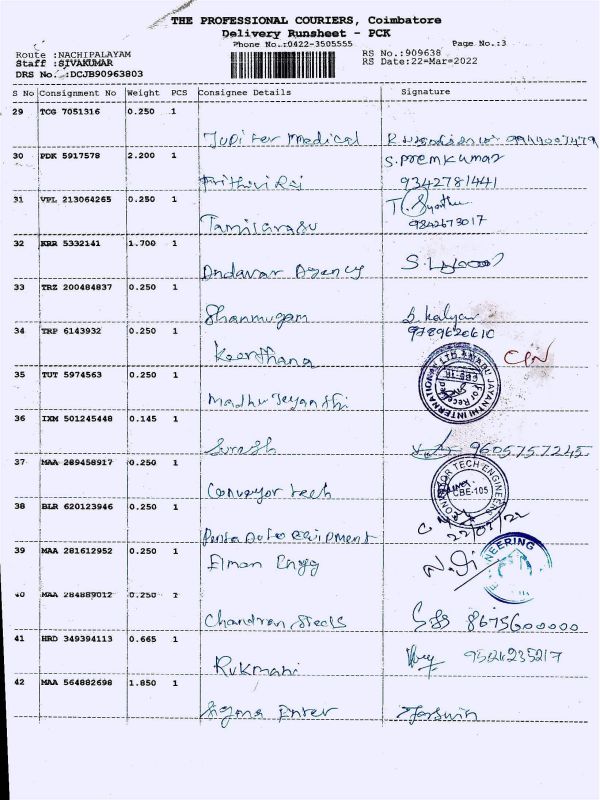 THE PROFESSIONAL COURIERS, Coimbatore
Delivery Runsheet - PCK
Phone No.:0422-3505555 Page No.:3
Route :NACHIPALAYAM RS No.:909638
Staff :SIVAKUMAR RS Date:22-Mar-2022
DRS No. :DCJB90963803
S No Consignment No Weight PCS Consignee Details Signature
29 TCG 7051316 0.250 1
Jupiter Medical
30 PDK 5917578 2.200 1 S.Premkumar
Prithvi Raj 9342781441
31 VPL 213064265 0.250 1
Tamilarasu 9842673017
32 KRR 5332141 1.700 1
Andavar Agency
33 TRZ 200484837 0.250 1
Shanmugam S. Kalyan
34 TRP 6143932 0.250 1 9789626610
Keerthana
35 TUT 5974563 0.250 1
Madhu Jeyanthi
36 IXM 501245448 0.145 1
Suresh 9605757245
37 MAA 289458917 0.250 1
Conveyor tech CONVEYOR TECH ENGINEERS CBE-105
38 BLR 620123946 0.250 1
22/03/22
39 MAA 281612952 0.250 1
Elman Engg
40 MAA 284889012 0.250 1
Chandran Steels 8675600000
41 HRD 349394113 0.665 1
Rukmani 9524235217
42 MAA 564882698 1.850 1
Enter